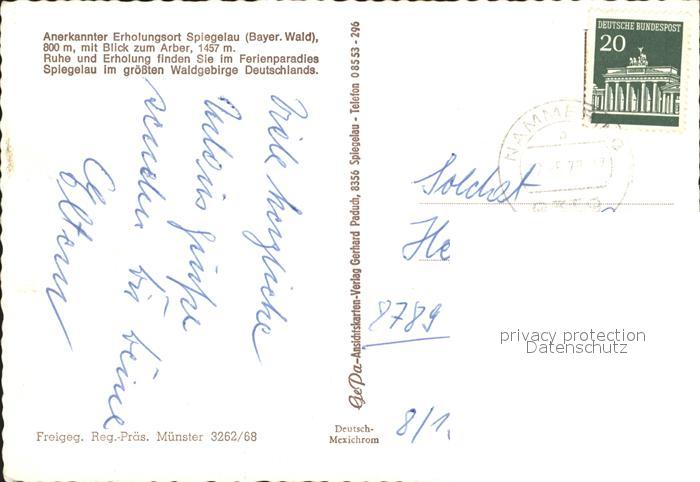 Anerkannter Erholungsort Spiegelau (Bayer. Wald),
800 m, mit Blick zum Arber, 1457 m.
Ruhe und Erholung finden Sie im Ferienparadies
Spiegelau im größten Waldgebirge Deutschlands.
Viele herzliche
Urlaubsgrüße
senden Dir Deine
Eltern
Freigeg. Reg.-Präs. Münster 3262/68
GePa-Ansichtskarten-Verlag Gerhard Paduch, 8356 Spiegelau - Telefon 0 85 53 - 296
Deutsch-
Mexichrom
DEUTSCHE BUNDESPOST
20
Soldat
He
8789
8/1.
privacy protection
Datenschutz